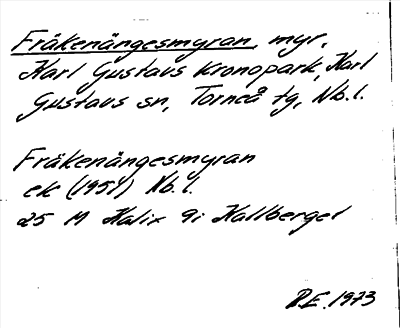 Fräkenängesmyran, myr,
Karl Gustavs kronopark, Karl
Gustavs sn, Torneå tg, Nb.l.
Fräkenängesmyran
ek (1951) Nb.l.
25 M Kalix 9i Kallberget
B.E. 1973